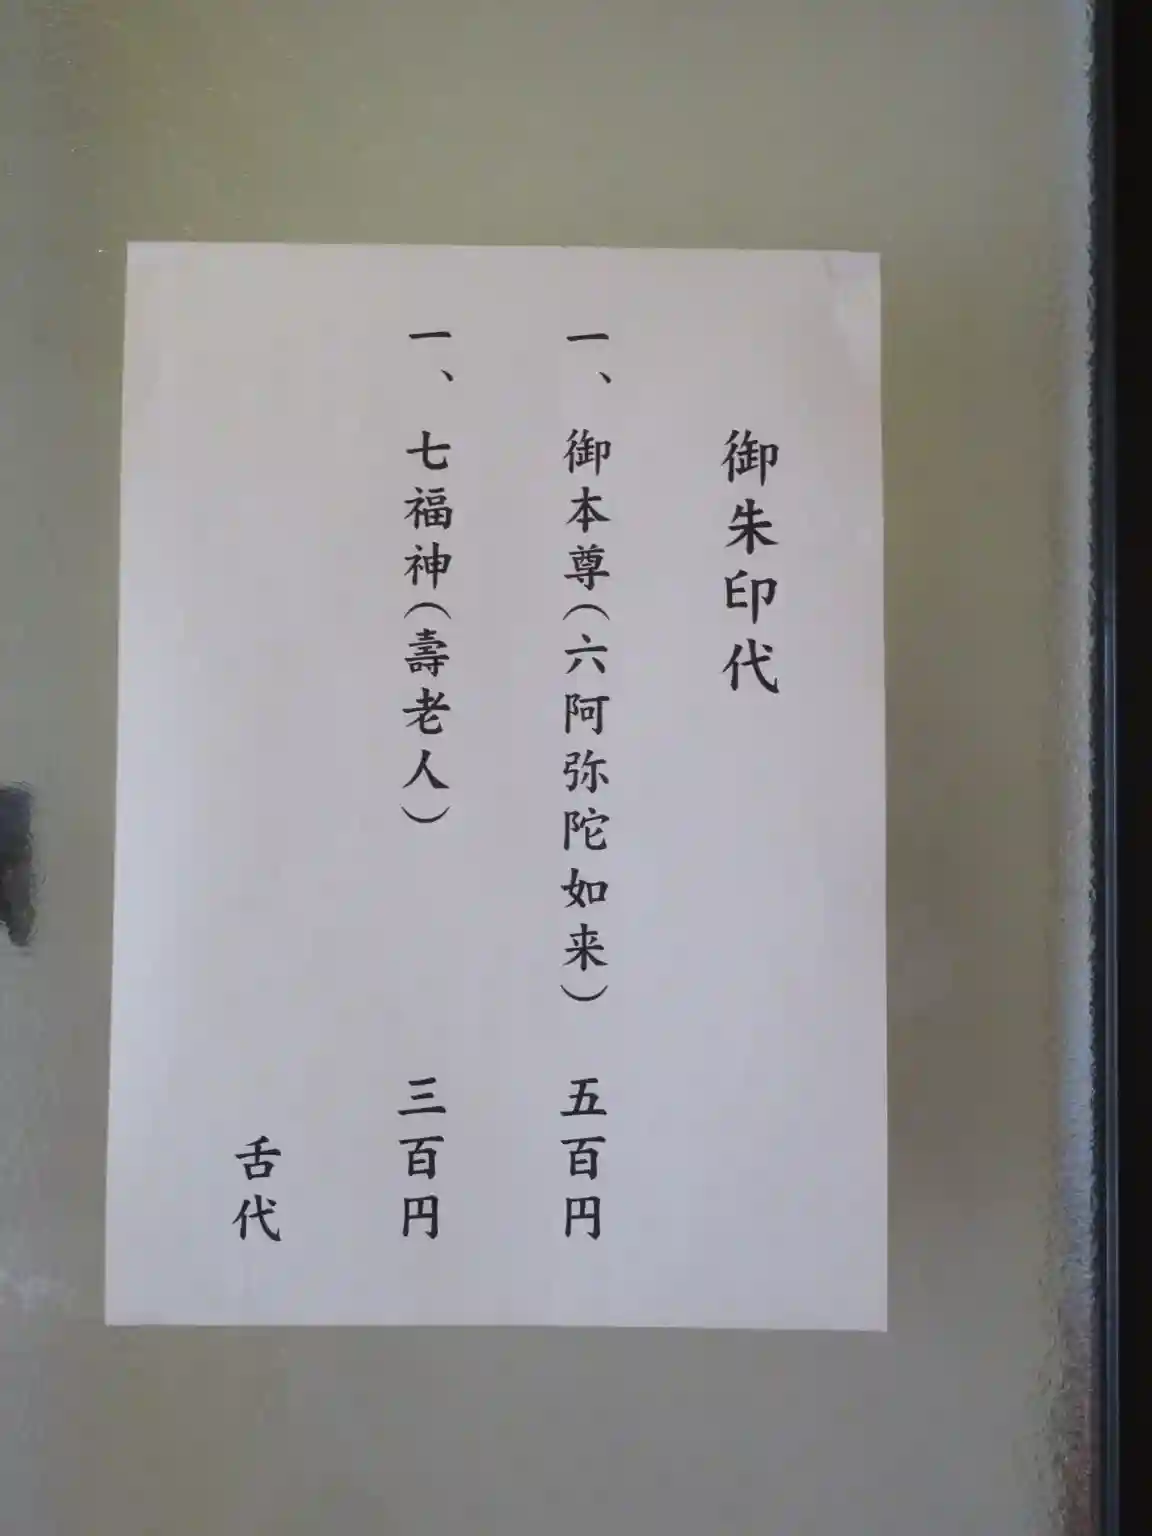 御朱印代
一、御本尊（六阿弥陀如来） 五百円
一、七福神（壽老人） 三百円
舌代